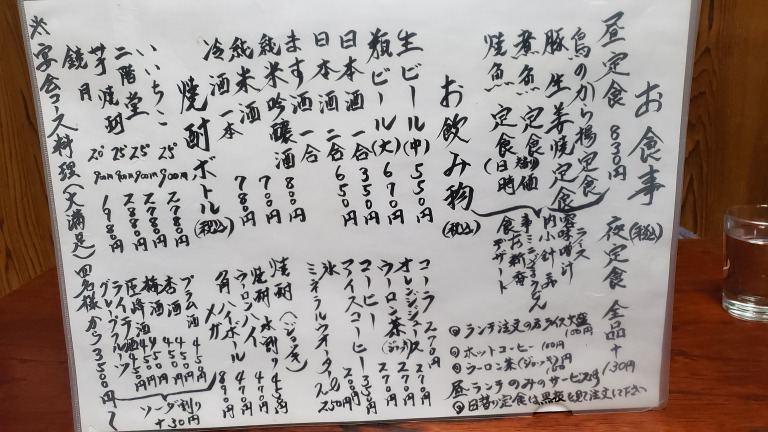 お食事(税込)
昼定食 830円 夜定食 全品+130円
鳥のから揚定食
豚生姜焼定食
煮魚定食
焼魚定食(日時
ライス
味噌汁
お新香
デザート
お飲み物(税込)
生ビール(中) 550円
瓶ビール(大) 670円
日本酒 一合 350円
日本酒 二合 650円
ます酒 一合
純米吟醸酒 800円
純米酒 700円
冷酒 一本 780円
焼酎ボトル(税込)
いいちこ 25° 900ml 2780円
二階堂 25° 900ml 2780円
芋焼酎 25° 900ml 2880円
鏡月 20° 900ml 1980円
※宴会コース料理(大満足)四名様から3500円〜
コーラ 270円
オレンジジュース 270円
ウーロン茶(ジョッキ) 270円
コーヒー
アイスコーヒー
氷
ミネラルウォーター 2L 250円
焼酎(ジョッキ)
焼酎水割り 450円
ウーロンハイ 470円
角ハイボール 470円
メガ 890円
プラム酒 450円
杏酒 450円
梅酒 450円
ライチ酒
グレープフルーツ
ソーダ割り
+30円
◎ランチ注文の方ライス大盛
100円
◎ホットコーヒー 100円
◎ウーロン茶(ジョッキ)
昼ランチのみのサービスです
◎日替り定食は黒板を見て注文して下さい